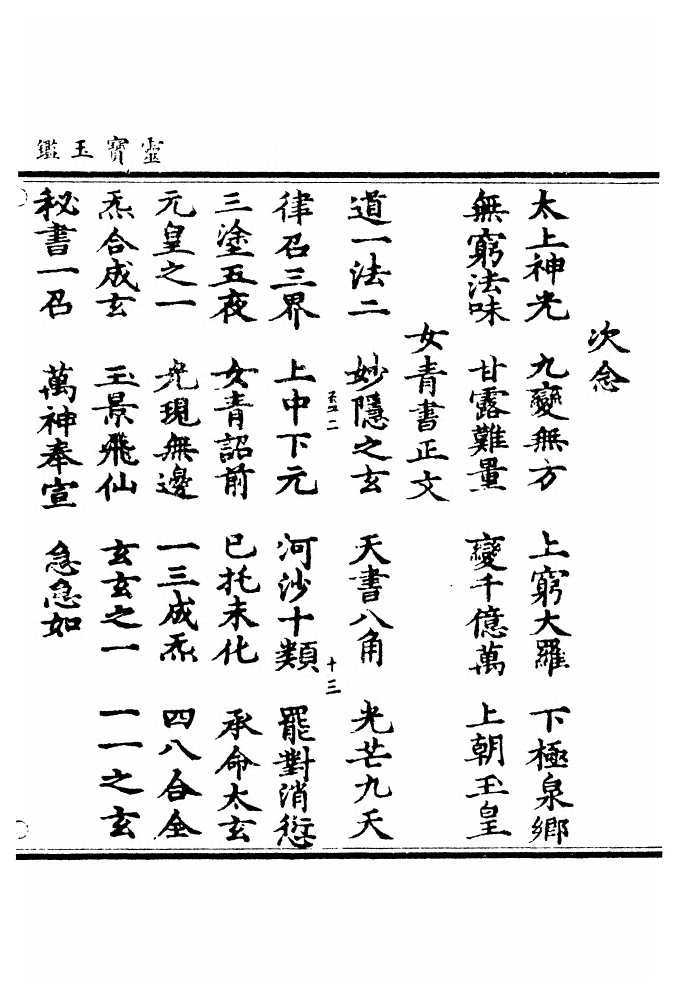 靈寶玉鑑
次念
太上神光 九變無方 上窮大羅 下極泉鄉
無窮法味 甘露難量 變千億萬 上朝玉皇
女青書正文
道一法二 妙隱之玄 天書八角 光芒九天
十三
律召三界 上中下元 河沙十類 罷對消愆
三塗五夜 女青詔前 已托未化 承命太玄
元皇之一 光現無邊 一三成炁 四八合全
炁合成玄 玉景飛仙 玄玄之一 一一之玄
秘書一召 萬神奉宣 急急如